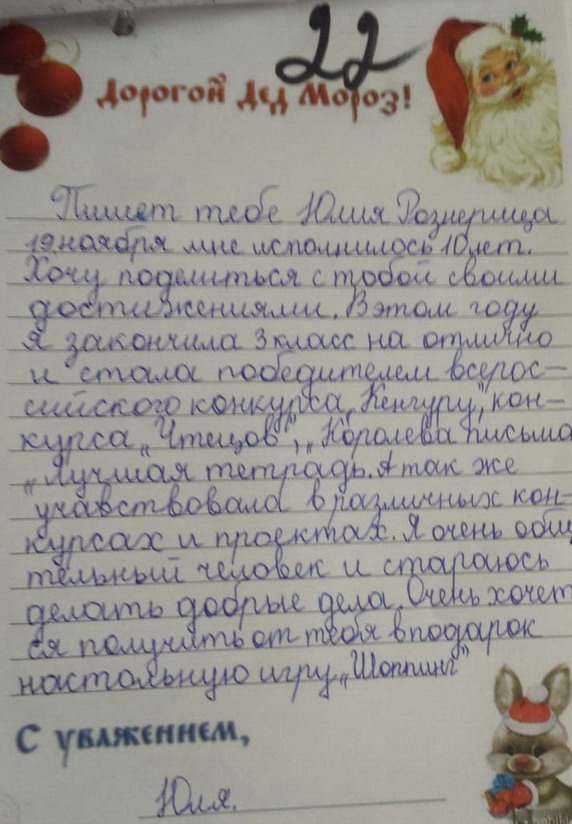 22
Дорогой Дед Мороз!
Пишет тебе Юлия Рознерица
19 ноября мне исполнилось 10 лет.
Хочу поделиться с тобой своими
достижениями. В этом году
я закончила 3 класс на отлично
и стала победителем всерос-
сийского конкурса „Кенгуру", кон-
курса „Чтецов", „Королева письма
„Лучшая тетрадь. А так же
учавствовала в различных кон-
курсах и проектах. Я очень общ
тельный человек и стараюсь
делать добрые дела. Очень хочет
ся получить от тебя в подарок
настольную игру „Шоппинг"
С уважением,
Юля.